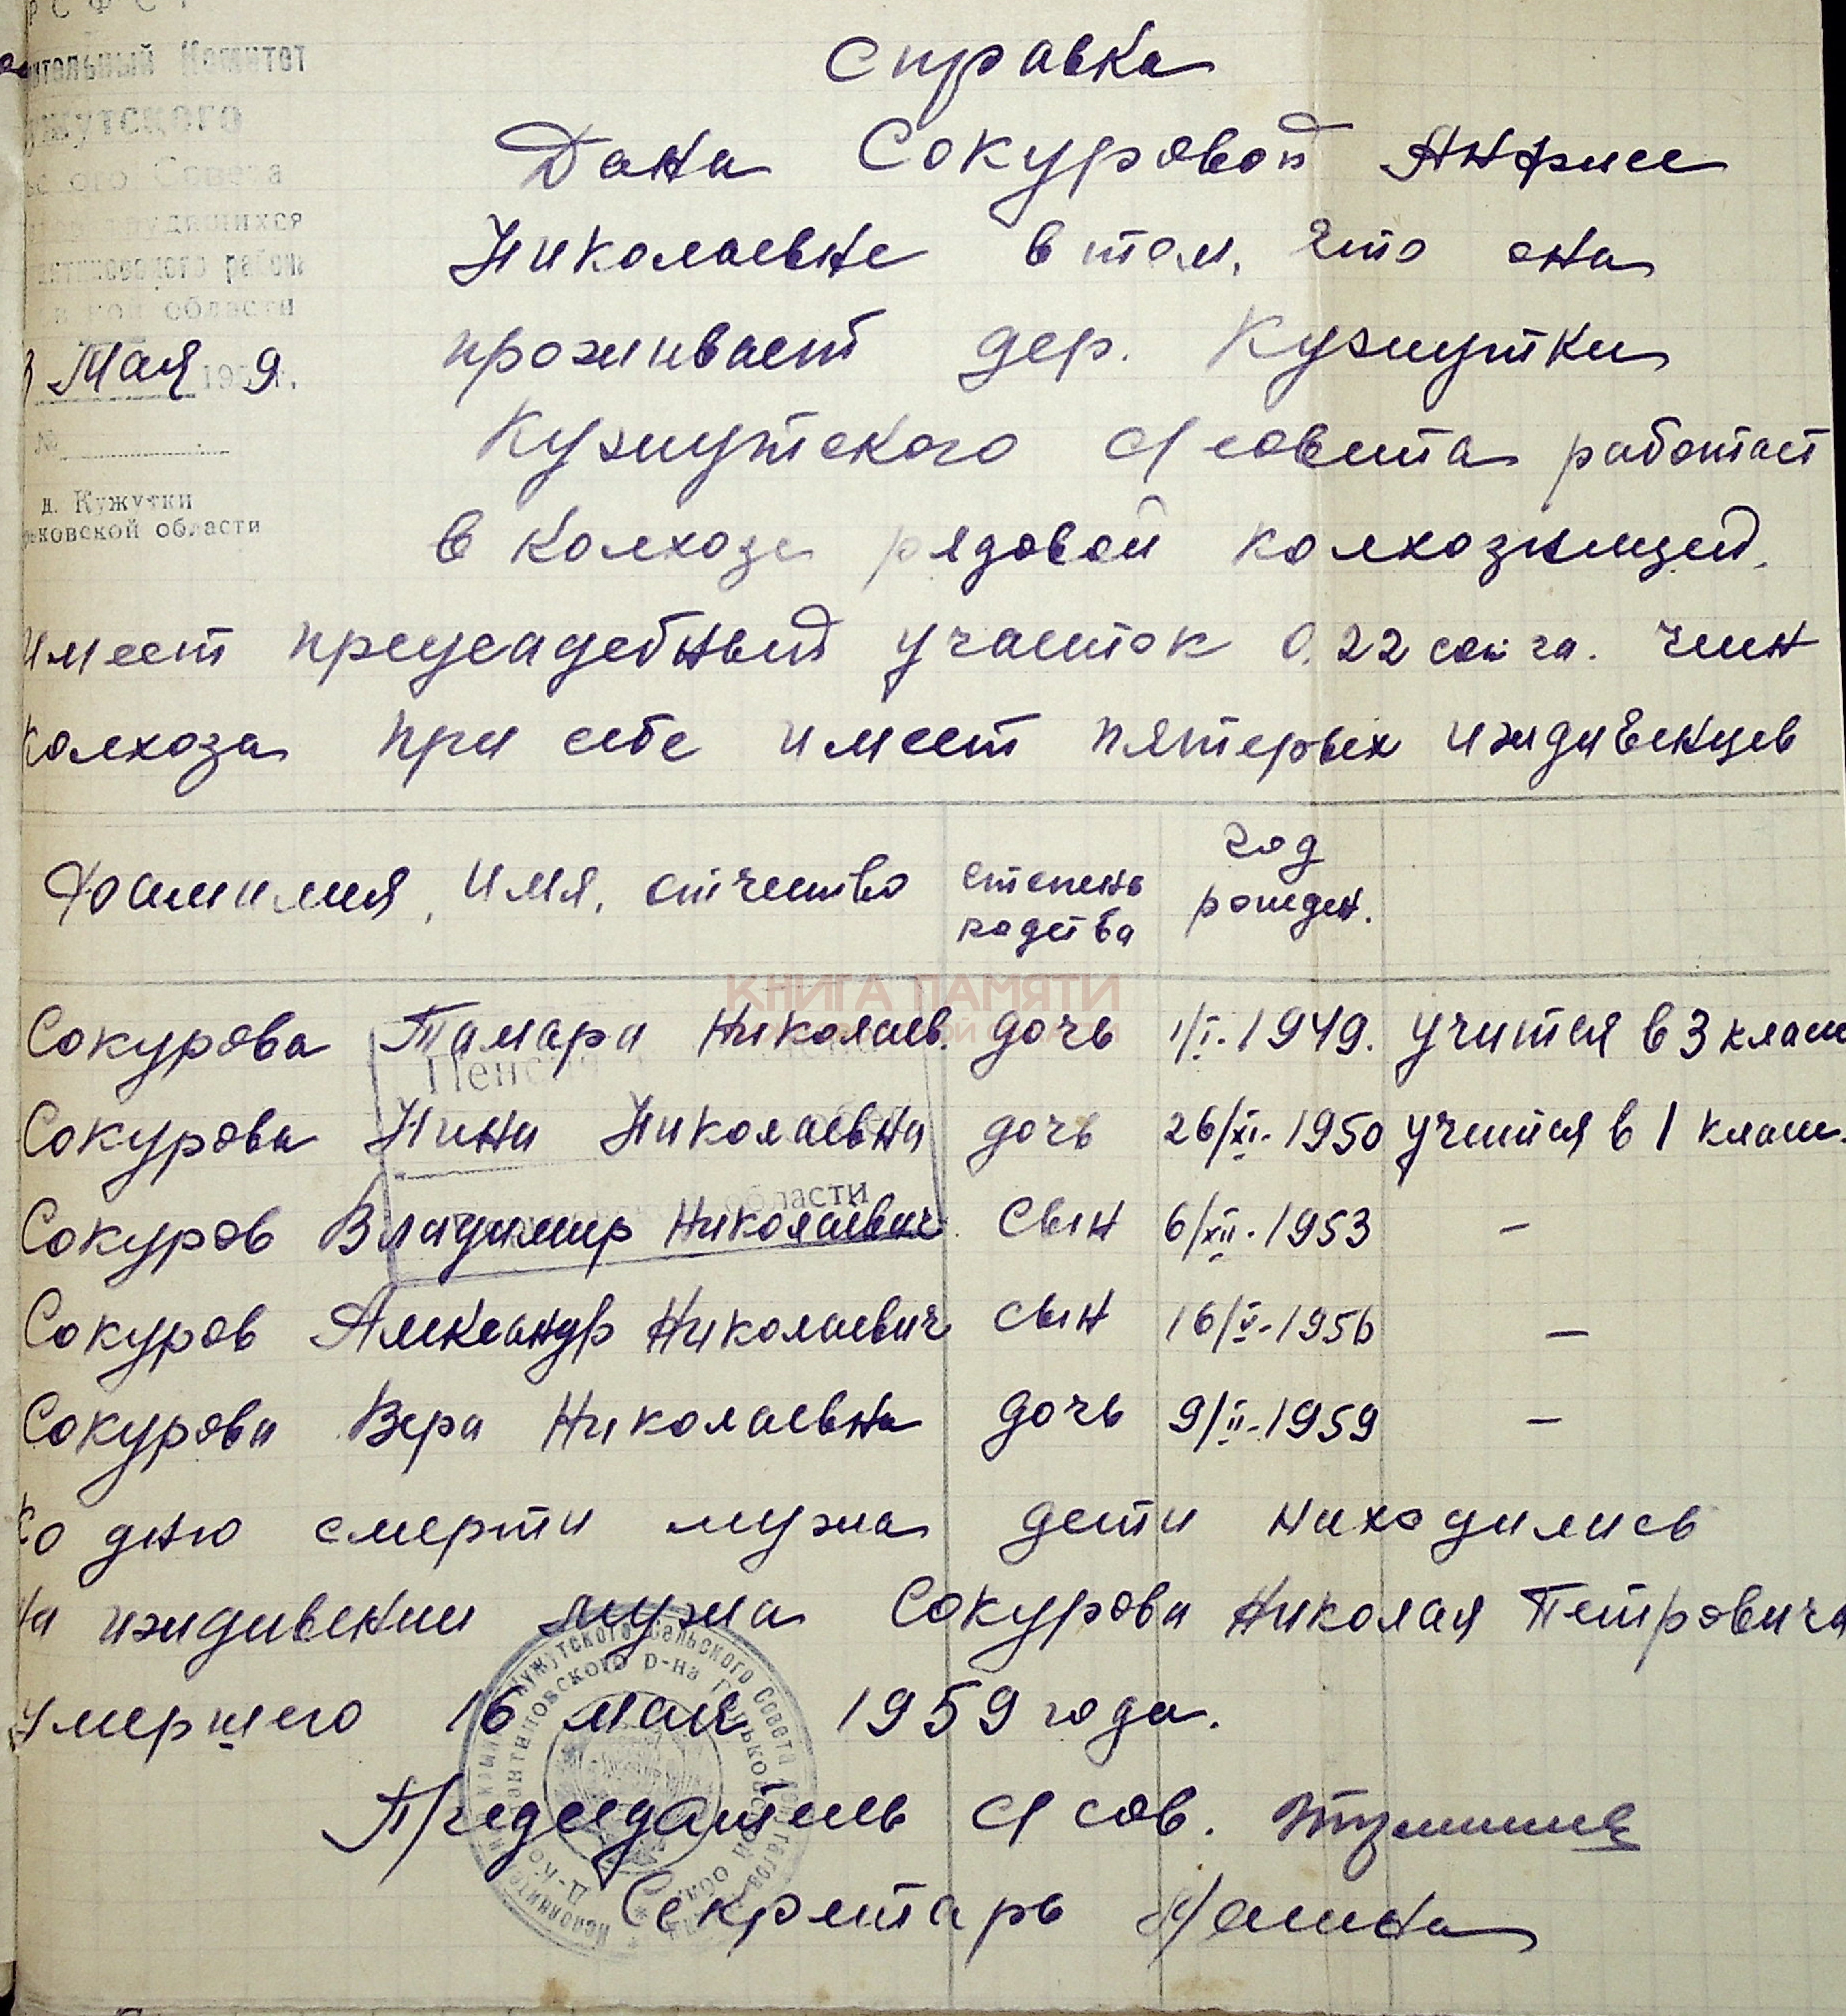 РСФСР
ительный Комитет
ужутского
ого Совета
трудящихся
антиновского района
кой области
Мая 1959 г.
№
д. Кужутки
рьковской области
Справка
Дана Сокуровой Анфисе
Николаевне в том, что она
проживает дер. Кужутки
Кужутского с/совета работает
в колхозе рядовой колхозницей.
имеет преусадебный участок 0,22 га. член
колхоза при себе имеет пятерых иждивенцев
Фамилия, имя, отчество степень родства год рожден.
КНИГА ПАМЯТИ
Сокурова Тамара Николаев. дочь 1/I-1949. учится в 3 класс
Сокурова Нина Николаевна дочь 26/XI-1950 учится в 1 класс.
Сокуров Владимир Николаевич сын 6/XII-1953 –
Сокуров Александр Николаевич сын 16/V-1956 –
Сокурова Вера Николаевна дочь 9/II-1959 –
Пенс
области
Ко дню смерти мужа дети находились
на иждивении мужа Сокурова Николая Петровича
умершего 16 мая 1959 года.
Председатель с/сов.
Секретарь
Кужутского Сельского Совета
антиновского р-на Горьковской обл.